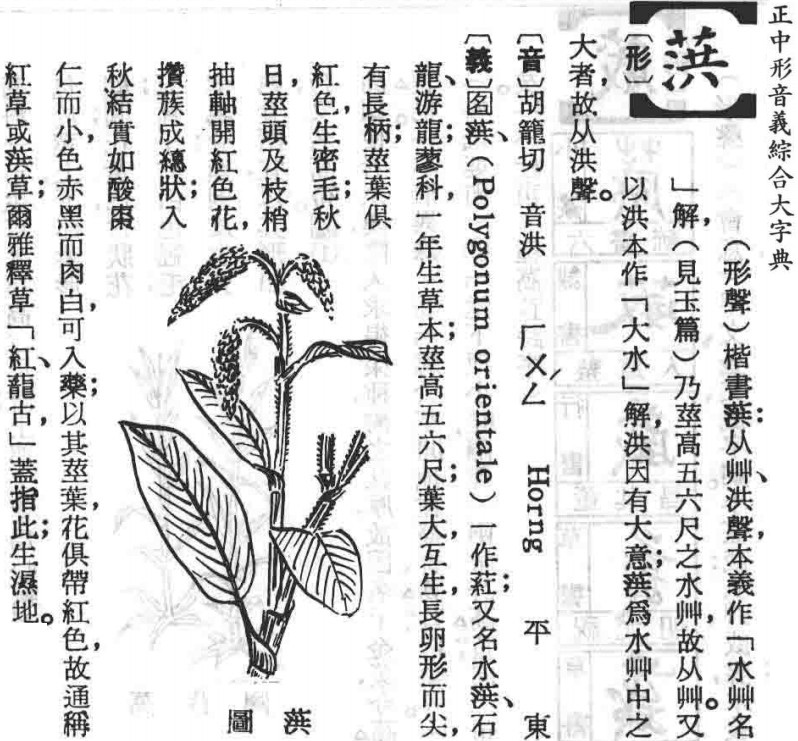 正中形音義綜合大字典
葓
〔形〕
(形聲)楷書葓:从艸、洪聲,本義作「水艸名
」解,(見玉篇)乃莖高五六尺之水艸,故从艸。又
以洪本作「大水」解,洪因有大意;葓爲水艸中之
大者,故从洪聲。
〔音〕胡籠切 音洪 ㄏㄨㄥˊ Horng 平 東
〔義〕名葓、(Polygonum orientale)一作葒;又名水葓、石
龍、游龍;蓼科,一年生草本;莖高五六尺;葉大,互生,長卵形而尖,
有長柄;莖葉俱
紅色,生密毛;秋
日,莖頭及枝梢
抽軸開紅色花,
攢族成總狀;入
秋結實如酸棗
仁而小,色赤黑而肉白,可入藥;以其莖葉,花俱帶紅色,故通稱
紅草或葓草;爾雅釋草「紅、龍古,」蓋指此;生濕地。
葓圖